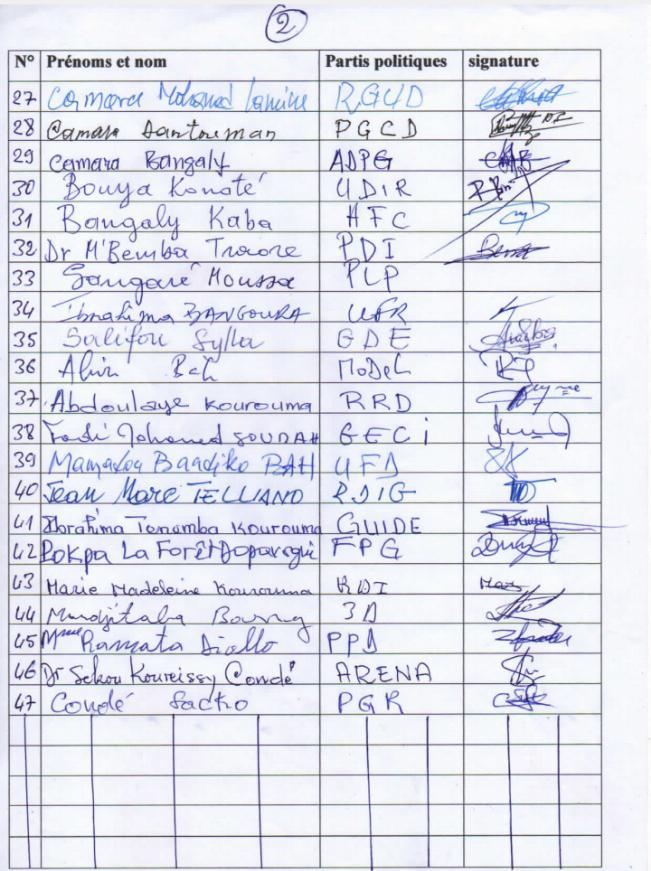 2
N° Prénoms et nom Partis politiques signature
27 Camara Mohamed Lamine RGUD
28 Camara Santouman PGCD
29 Camara Bangaly ADPG
30 Bouya Konaté UDIR
31 Bangaly Kaba AFC
32 Dr M'Bemba Traore PDI
33 Sangaré Moussa PLP
34 Ibrahima BANGOURA UFR
35 Salifou Sylla GDE
36 Bah MoDeL
37 Abdoulaye Kourouma RRD
38 Fodé Mohamed SOUMAH GECi
39 Mamadou Baadiko BAH UFD
40 Jean Marc TELLIANO RDIG
41 Ibrahima Tonamba Kourouma GUIDE
42 Pokpa La Forêt FPG
43 Marie Madeleine Kourouma RDI
44 3D
45 Mme Ramata Diallo PPD
46 Dr Sekou Koureissy Condé ARENA
47 Condé Sacko PGR